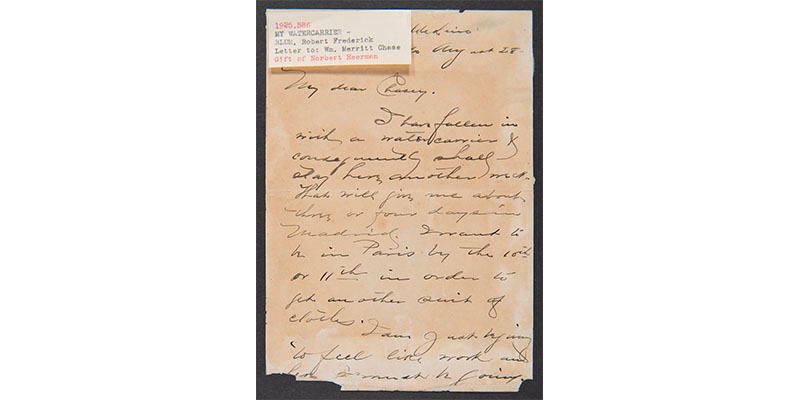 1925.586
MY WATERCARRIER -
BLUM, Robert Frederick
Letter to: Wm. Merritt Chase
Gift of Norbert Heerman
August 28
My dear Chasey.
I have fallen in
with a watercarrier &
consequently shall
stay here another week.
That will give me about
three or four days in
Madrid. I want to
be in Paris by the 10th
or 11th in order to
get another suit of
clothes.
I am just trying
to feel like work and
here I must be going.